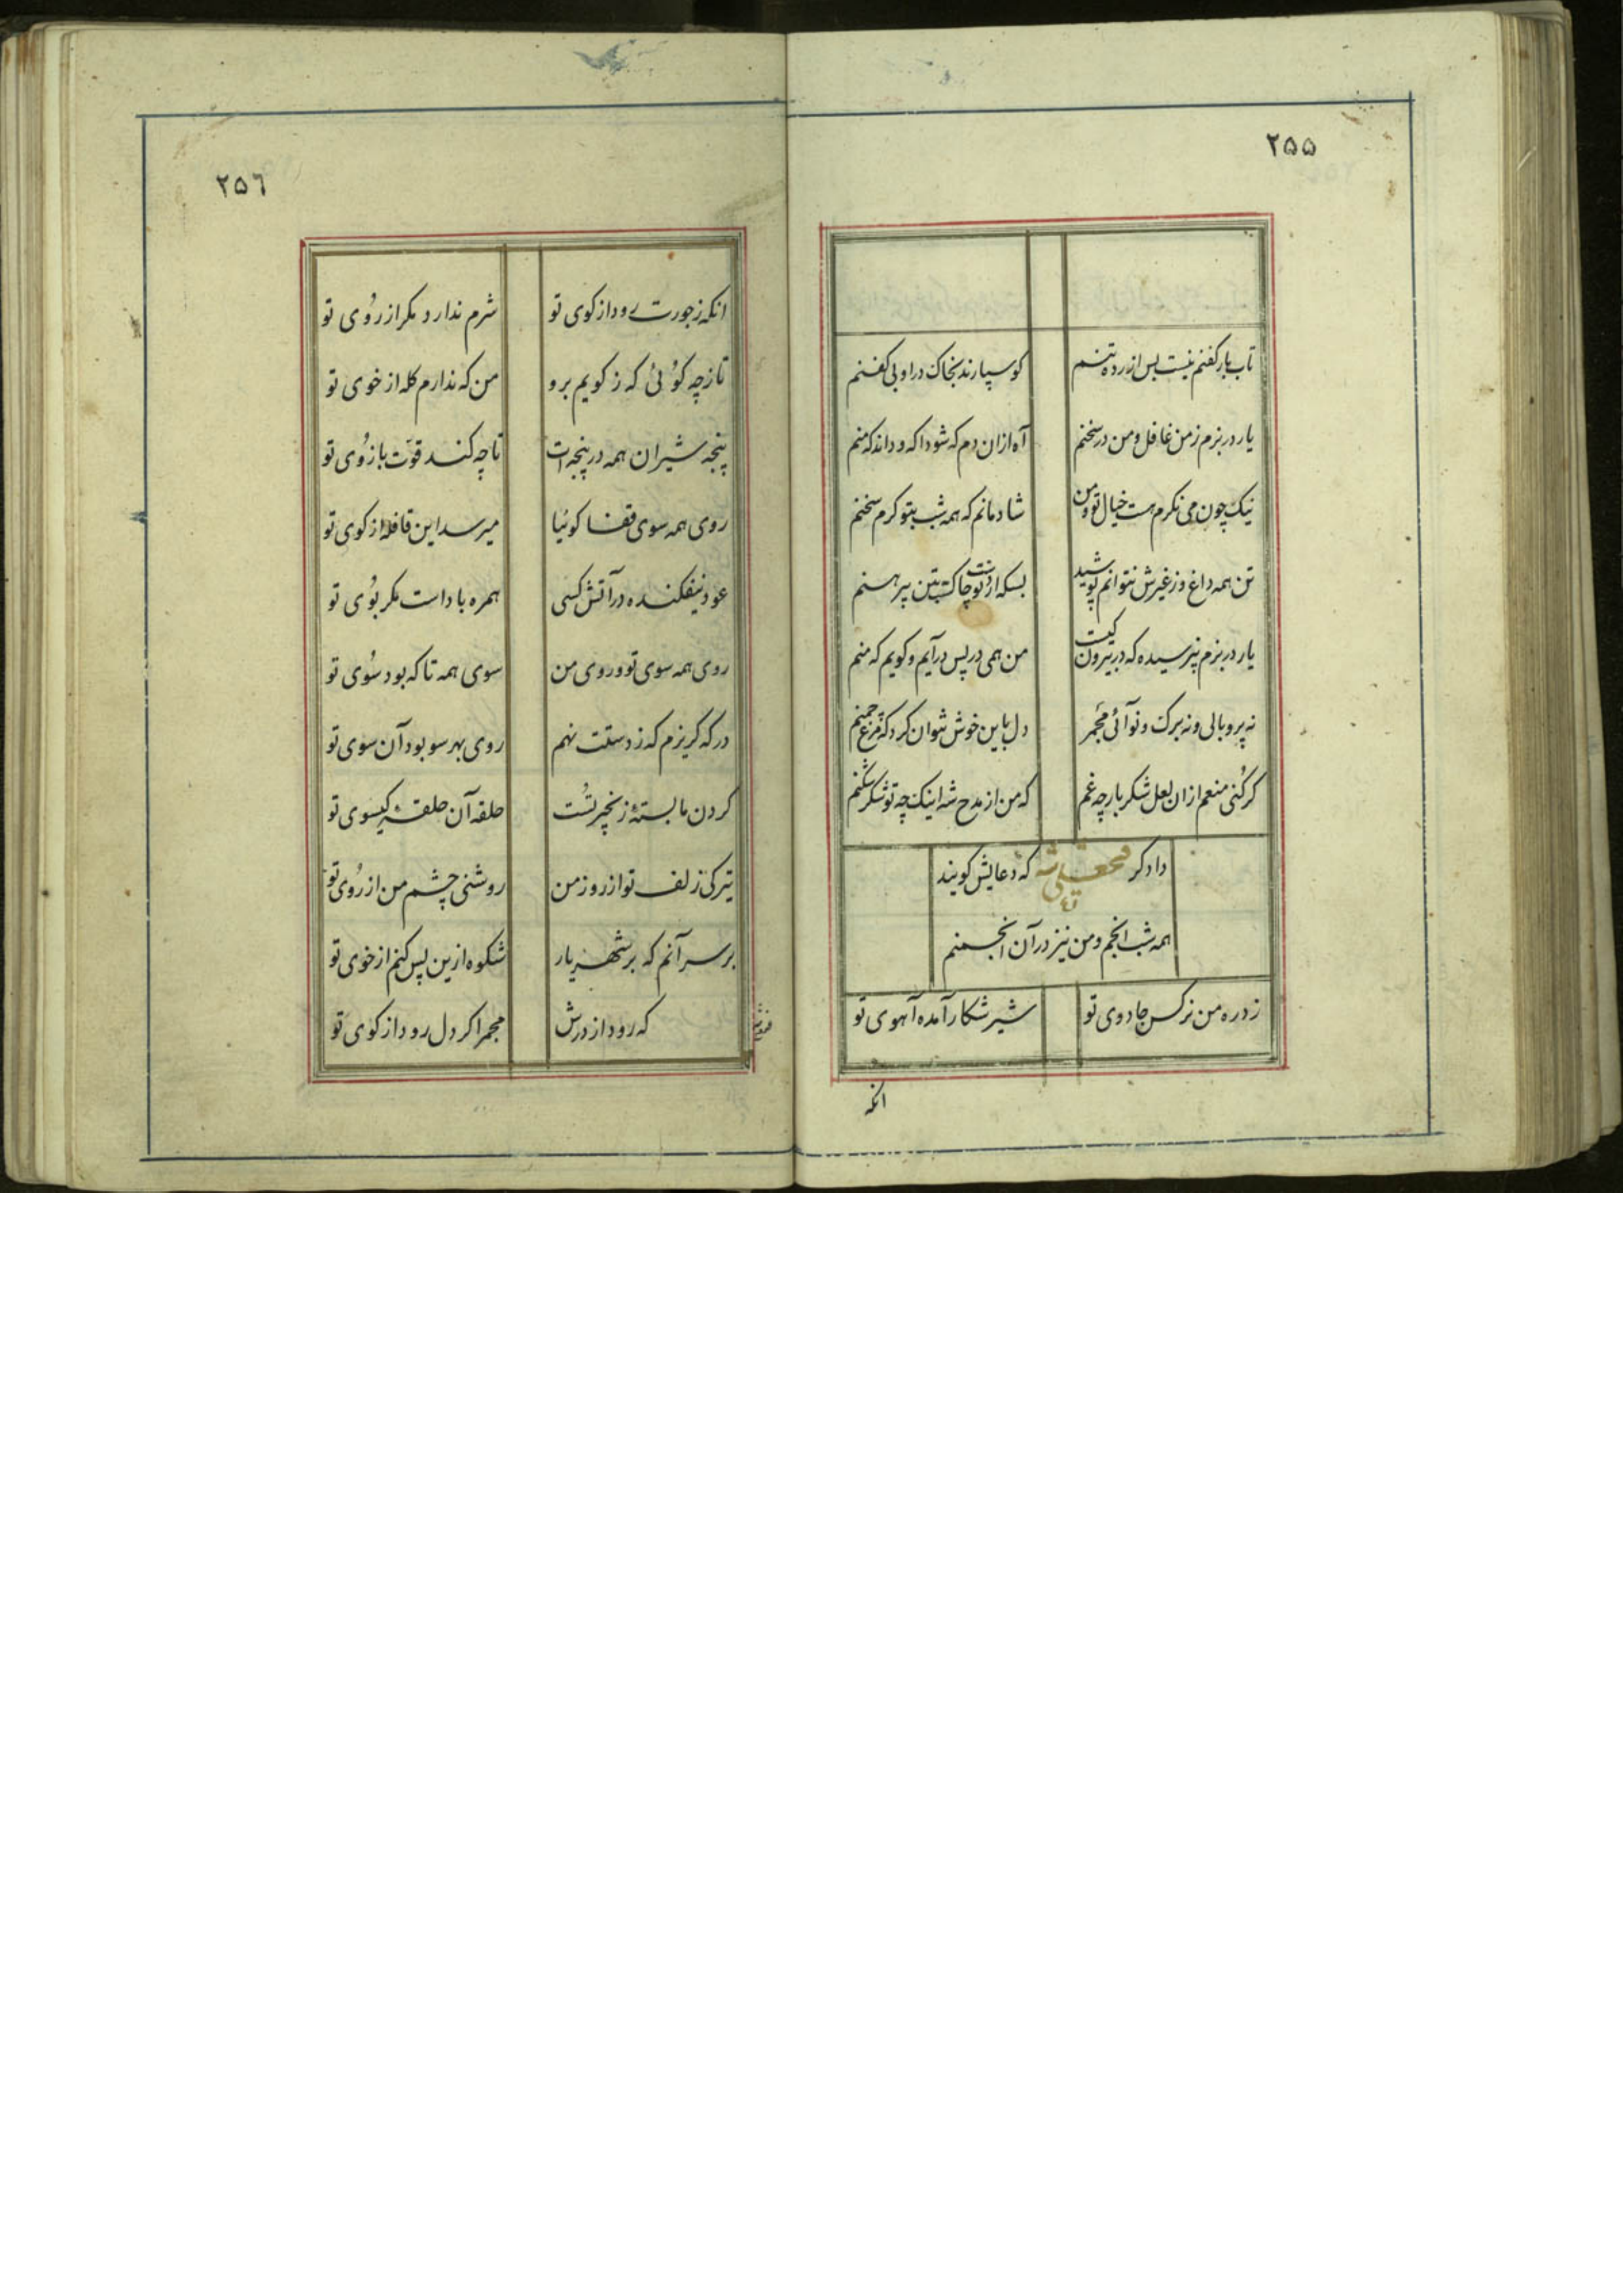 ۲۵۵
تاب بار کفنم نیست بس ازرده تنم کو سپارند بخاک در او بی کفنم
یار در بزم ز من غافل و من در سخنم آه ازان دم که شود اکه و داند که منم
نیک چون می نکرم هست خیال تو و من شادمانم که همه شب بتو کرم سخنم
تن همه داغ و ز غیرش نتوانم پوشید بسکه از دست تو چاکست بتن پیرهنم
یار در بزم بپرسیده که در بیرون کیست من همی در پس در آیم و کویم که منم
نه پر و بالی و نه برک و نوآئی مجمر دل باین خوش نتوان کرد که مرغ چمنم
کر کُنی منعم ازان لعل شکر بار چه غم که من از مدح شه اینک چه تو شکر شکنم
دادکر فتحعلی شه که دعایش کویند
همه شب انجم و من نیز در آن انجمنم
زد ره من نرکس جادوی تو شیر شکار آمده آهوی تو
انکه
۲۵۶
انکه ز جورت رود از کوی تو شرم ندارد مکر از رُوی تو
تا ز چه کوُئی که ز کویم برو من که ندارم کله از خوی تو
پنجه شیران همه در پنجه ات تا چه کند قوّت بازُوی تو
روی همه سوی قفا کوئیا میرسد این قافله از کوی تو
عود نیفکنده در آتش کسی همره باد است مکر بُوی تو
روی همه سوی تو و روی من سوی همه تا که بود سُوی تو
در که کریزم که ز دستت نهم روی بهر سو بود آن سوی تو
کردن ما بستهٔ زنجیر تُست حلقه آن حلقهٔ کیسوی تو
تیرکی زلف تو از روز من روشنی چشم من از رُوی تو
بر سر آنم که بر شهریار شکوه ازین پس کنم از خوی تو
که رود از درش مجمر اکر دل رود از کوی تو